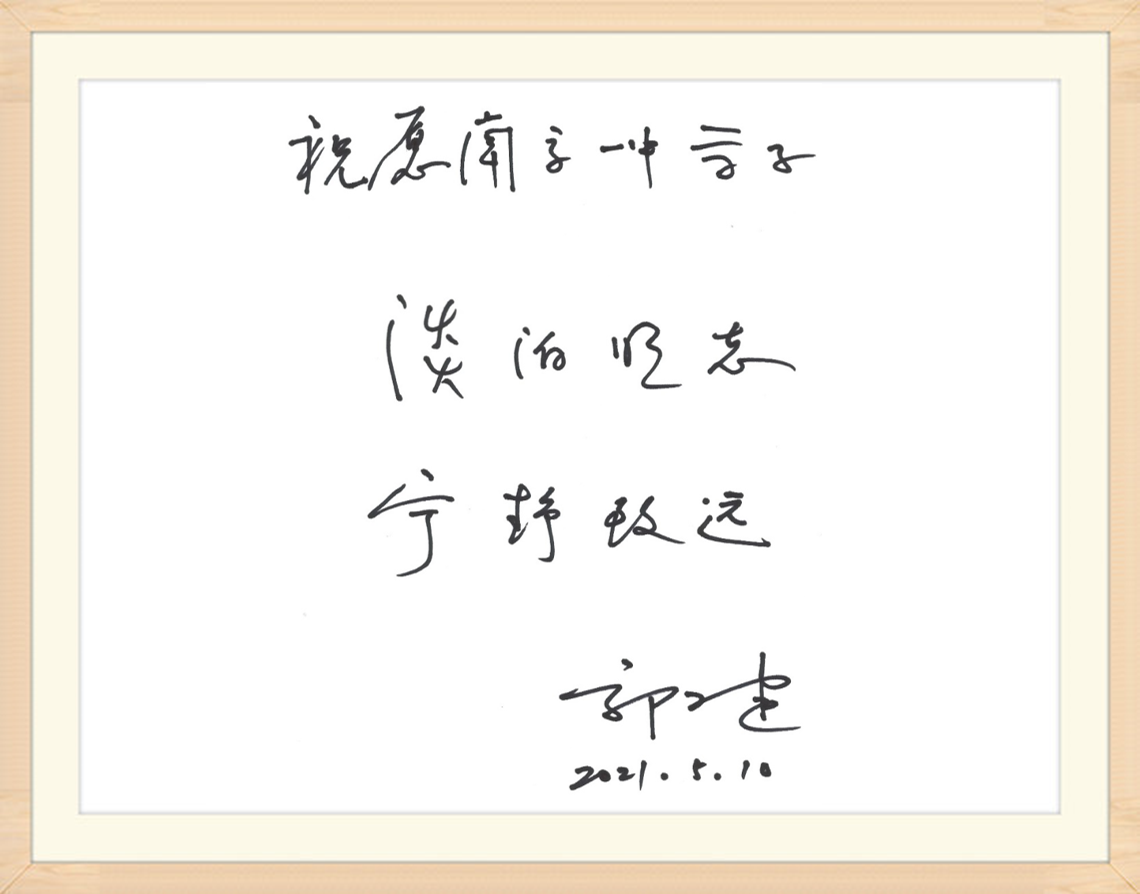 祝愿南安一中学子
淡泊明志
宁静致远
郭建
2021.5.10